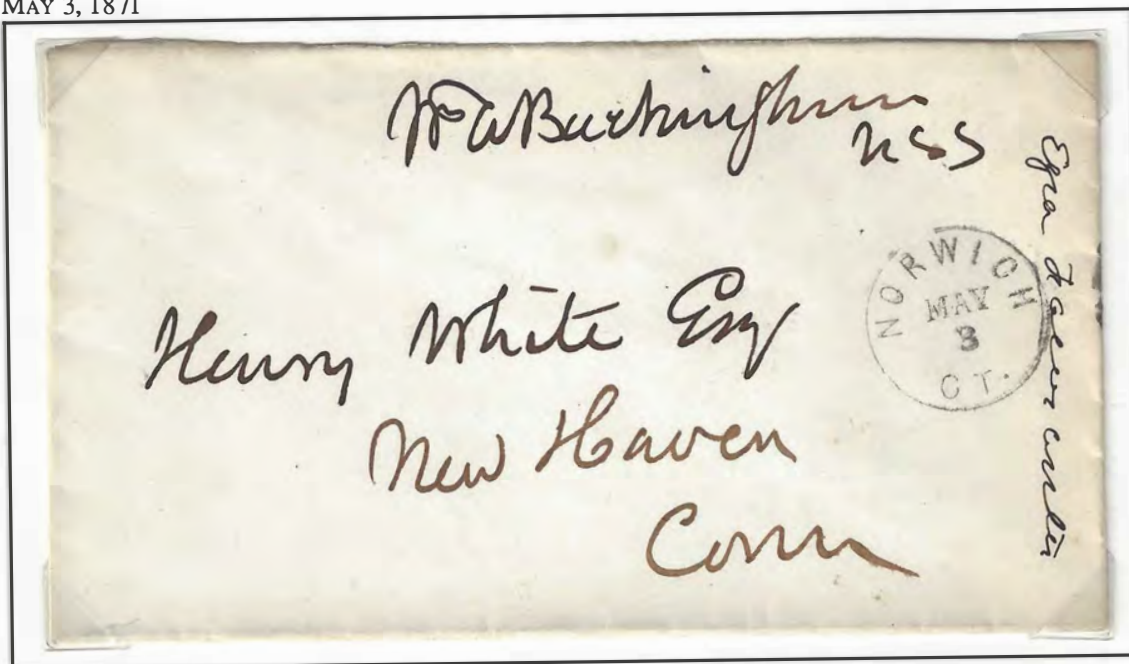 MAY 3, 1871
Wm A Buckingham
USS
Henry White Esq
New Haven
Conn
NORWICH
MAY
3
CT.